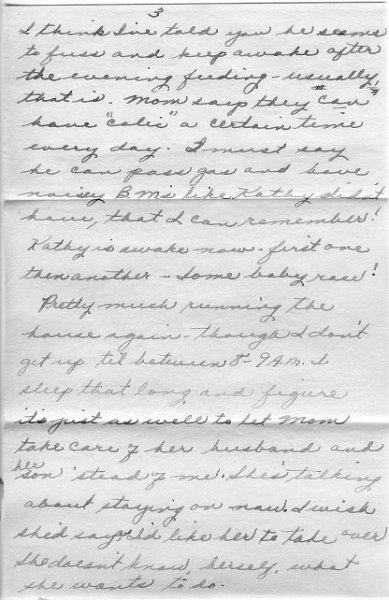 3
I think I've told you he seems
to fuss and keep awake after
the evening feeding - usually,
that is. Mom says they "can"
have "colic" a certain time
every day. I must say
he can pass gas and have
noisey B.M's like Kathy didn't
have, that I can remember!
Kathy is awake now - first one
then another - Some baby race!
Pretty much running the
house again - though I don't
get up 'til between 8 - 9 A.M. I
sleep that long and figure
it's just as well to let Mom
take care of her husband and
her son 'stead of me. She's talking
about staying on now. I wish
she'd say I'd like her to take over
She doesn't know, herself, what
she wants to do.